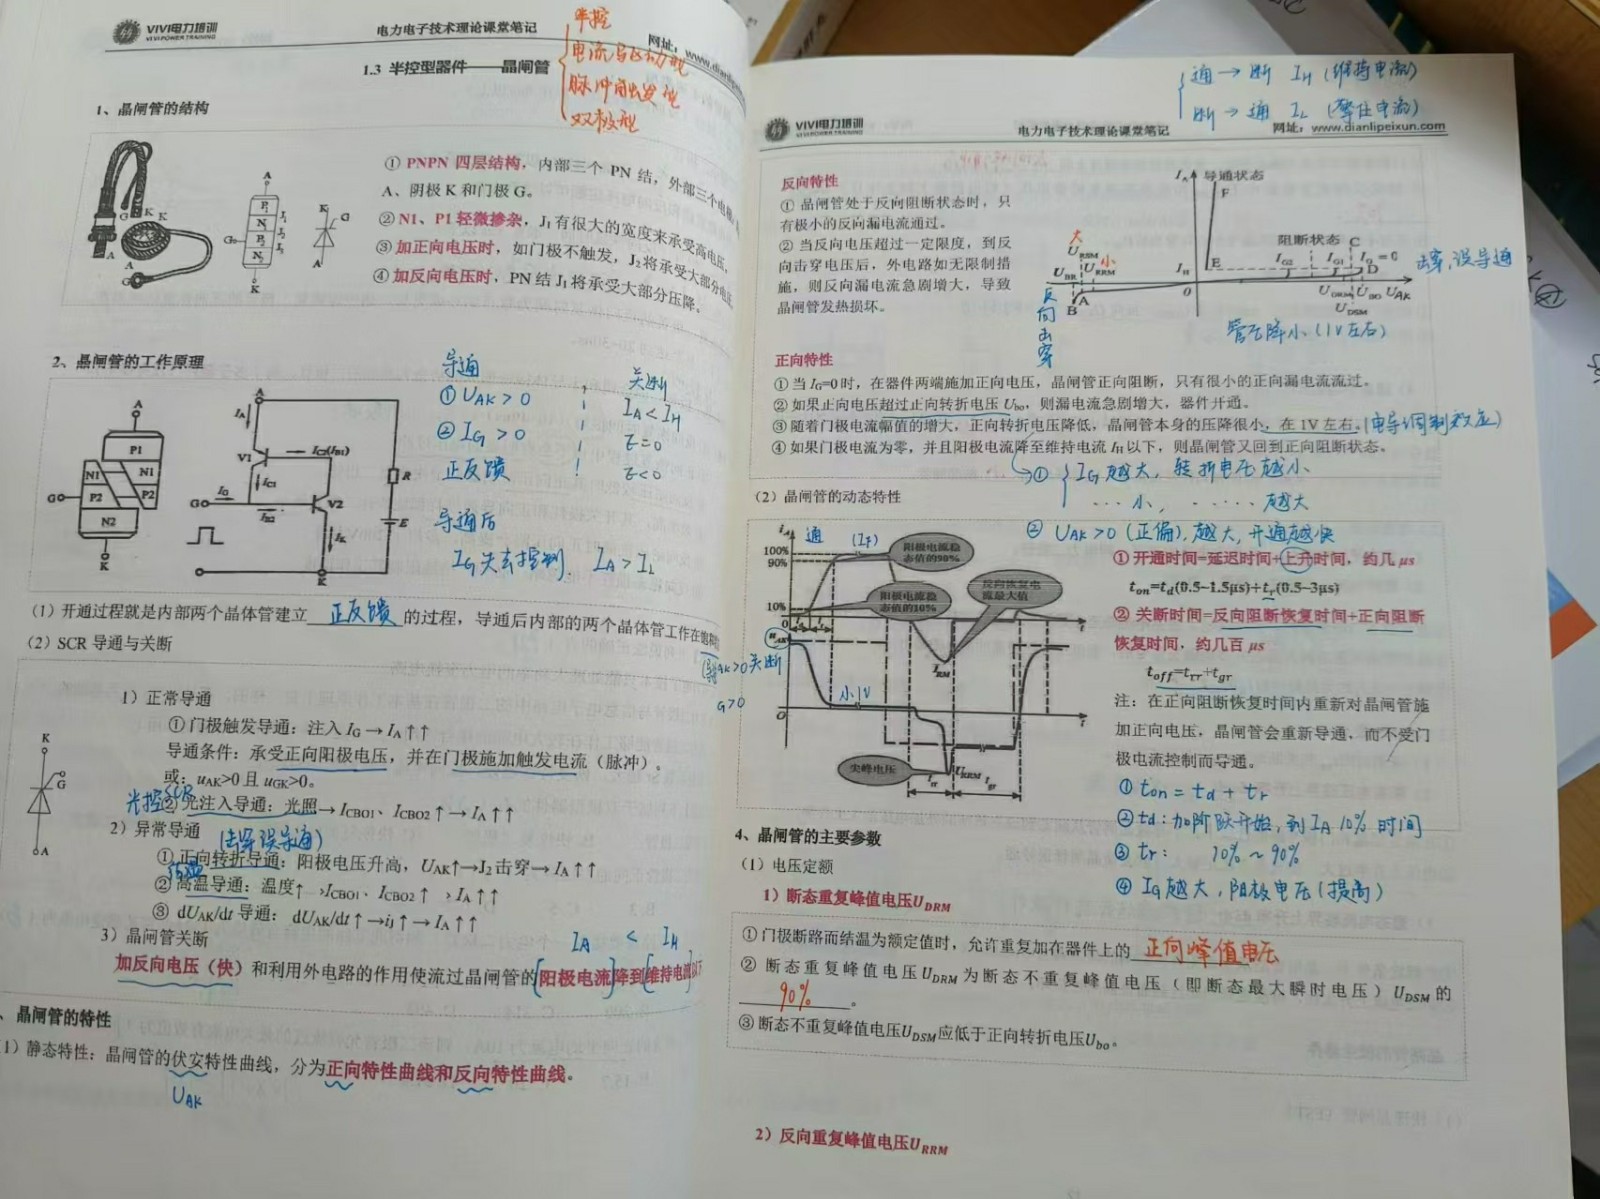 VIVI电力培训
VIVI POWER TRAINING
电力电子技术理论课堂笔记
网址：www.dianlipeixun
半控
电流驱动型
脉冲触发型
双极型
1.3 半控型器件——晶闸管
1、晶闸管的结构
① PNPN 四层结构，内部三个 PN 结，外部三个电极
A、阴极 K 和门极 G。
② N1、P1 轻微掺杂，J₁ 有很大的宽度来承受高电压，
③ 加正向电压时，如门极不触发，J₂ 将承受大部分电压
④ 加反向电压时，PN 结 J₁ 将承受大部分压降。
G K K
A A G
A
P₁
N₁
P₂
N₂
J₁
J₂
J₃
G
K
K G
A
2、晶闸管的工作原理
导通
① UAK > 0
② IG > 0
正反馈
关断
IA < IH
E=0
E<0
导通后
IG失去控制，IA > IL
A
P1
N1 N1
P2 P2
N2
G
K
A
IA
V1
IC2(IB1)
IC1
G IG
IB2
V2
IK
R
E
K
（1）开通过程就是内部两个晶体管建立 正反馈 的过程，导通后内部的两个晶体管工作在饱和
（2）SCR 导通与关断
1）正常导通
① 门极触发导通：注入 IG → IA ↑↑
导通条件：承受正向阳极电压，并在门极施加触发电流（脉冲）。
或：uAK>0 且 uGK>0。
光控SCR
② 光注入导通：光照→ ICBO1、ICBO2 ↑ → IA ↑↑
2）异常导通 （击穿误导通）
① 正向转折导通：阳极电压升高，UAK↑→J₂ 击穿→ IA ↑↑
② 高温导通：温度↑ →ICBO1、ICBO2 ↑ → IA ↑↑
③ dUAK/dt 导通： dUAK/dt ↑→ij ↑→ IA ↑↑
3）晶闸管关断
IA < IH
加反向电压（快）和利用外电路的作用使流过晶闸管的[阳极电流]降到[维持电流]以下
K
G
A
、晶闸管的特性
1）静态特性：晶闸管的伏安特性曲线，分为正向特性曲线和反向特性曲线。
UAK
通 → 断 IH（维持电流）
断 → 通 IL（擎住电流）
VIVI电力培训
VIVI POWER TRAINING
电力电子技术理论课堂笔记
网址：www.dianlipeixun.com
反向特性
① 晶闸管处于反向阻断状态时，只
有极小的反向漏电流通过。
② 当反向电压超过一定限度，到反
向击穿电压后，外电路如无限制措
施，则反向漏电流急剧增大，导致
晶闸管发热损坏。
IA 导通状态
F
阻断状态 C
大
URSM
小
URRM
UBR
IH E
IG2 IG1 IG=0
D
击穿，误导通
A
B
0
UDRM UBO UAK
UDSM
反向击穿
管压降小（1V左右）
正向特性
① 当 IG=0 时，在器件两端施加正向电压，晶闸管正向阻断，只有很小的正向漏电流流过。
② 如果正向电压超过正向转折电压 Ubo，则漏电流急剧增大，器件开通。
③ 随着门极电流幅值的增大，正向转折电压降低，晶闸管本身的压降很小，在 1V 左右。（电导调制效应）
④ 如果门极电流为零，并且阳极电流降至维持电流 IH 以下，则晶闸管又回到正向阻断状态。
→① IG 越大，转折电压越小
…… 小，…… 越大
② UAK>0（正偏），越大，开通越快
（2）晶闸管的动态特性
iA 通 (IF)
100%
90%
10%
0
阳极电流稳态值的90%
阳极电流稳态值的10%
反向恢复电流最大值
t
uAK
IRM
小1V
O
t
尖峰电压
trr
URRM
tgr
① 开通时间=延迟时间+上升时间，约几 μs
ton=td(0.5~1.5μs)+tr(0.5~3μs)
② 关断时间=反向阻断恢复时间+正向阻断
恢复时间，约几百 μs
toff=trr+tgr
注：在正向阻断恢复时间内重新对晶闸管施
加正向电压，晶闸管会重新导通，而不受门
极电流控制而导通。
① ton = td + tr
② td：加阶跃开始，到 IA 10% 时间
③ tr： 10% ~ 90%
④ IG越大，阳极电压（提高）
4、晶闸管的主要参数
（1）电压定额
1）断态重复峰值电压UDRM
① 门极断路而结温为额定值时，允许重复加在器件上的 正向峰值电压
② 断态重复峰值电压 UDRM 为断态不重复峰值电压（即断态最大瞬时电压）UDSM 的
90% 。
③ 断态不重复峰值电压UDSM应低于正向转折电压Ubo。
2）反向重复峰值电压URRM